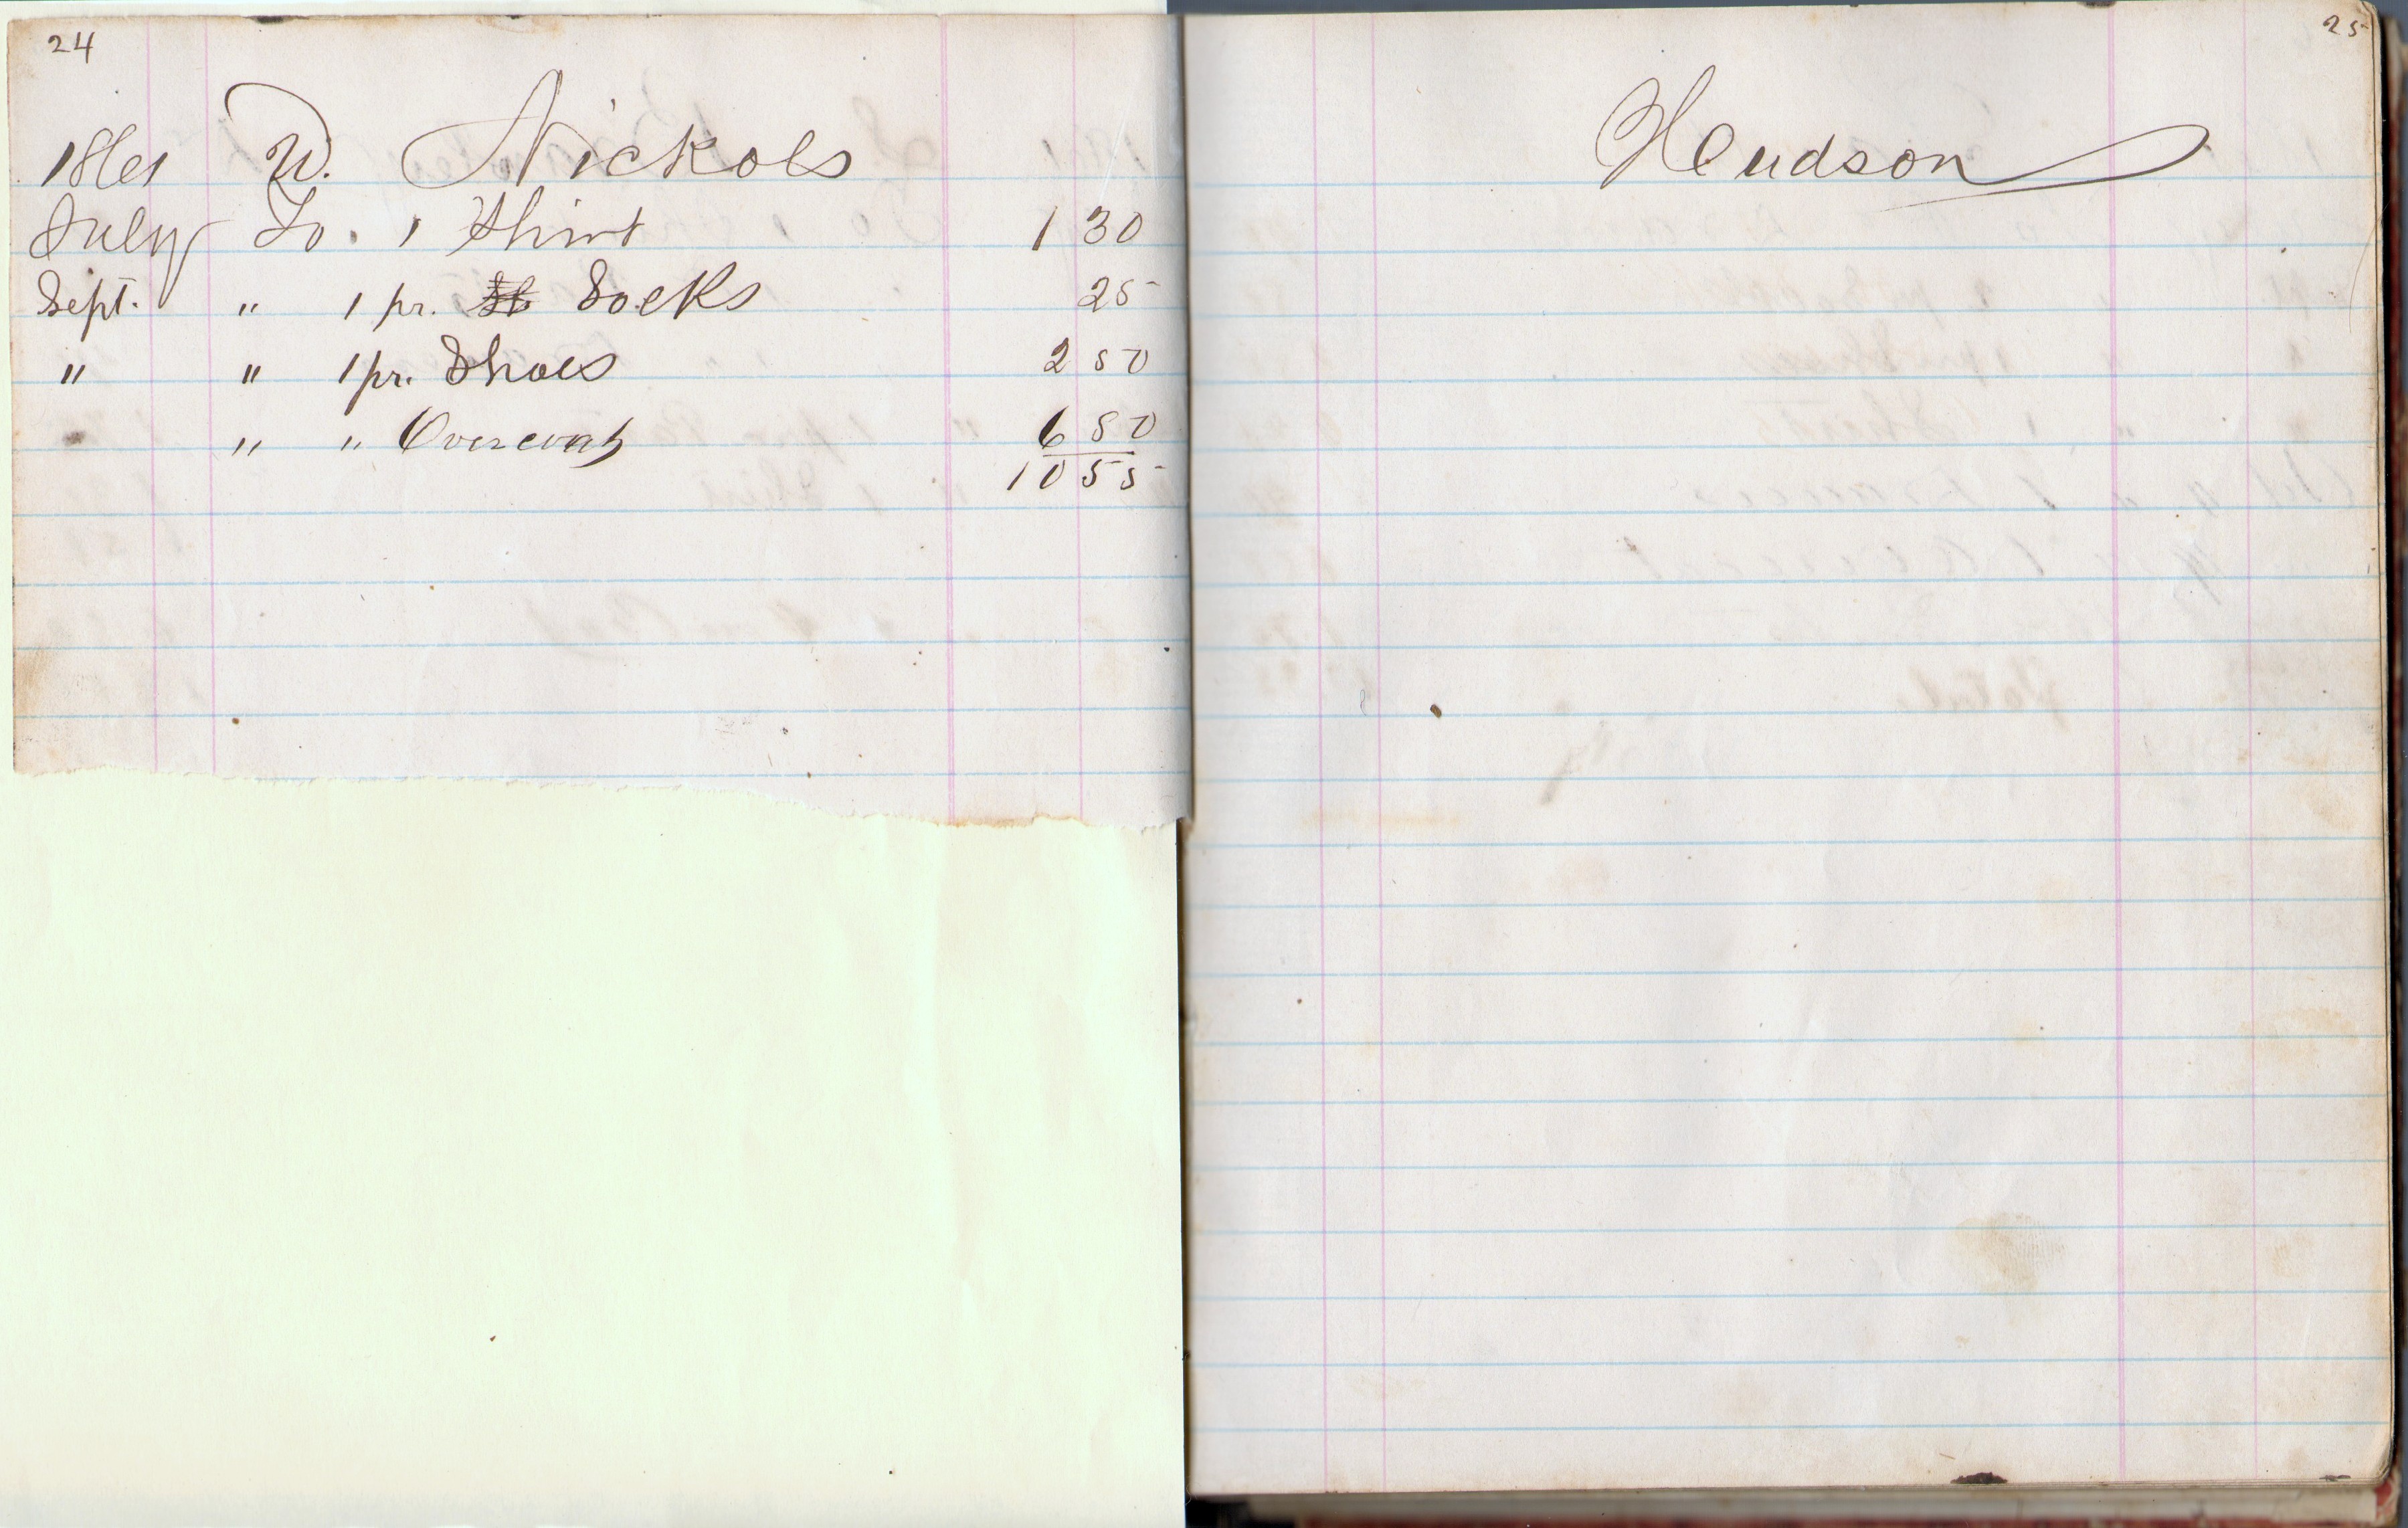 24
1861 W. Nickols
July To. 1 Shirt 1 30
Sept. " 1 pr. Socks 25
" " 1 pr. Shoes 2 50
" " Overcoat 6 50
10 55
25
Hudson